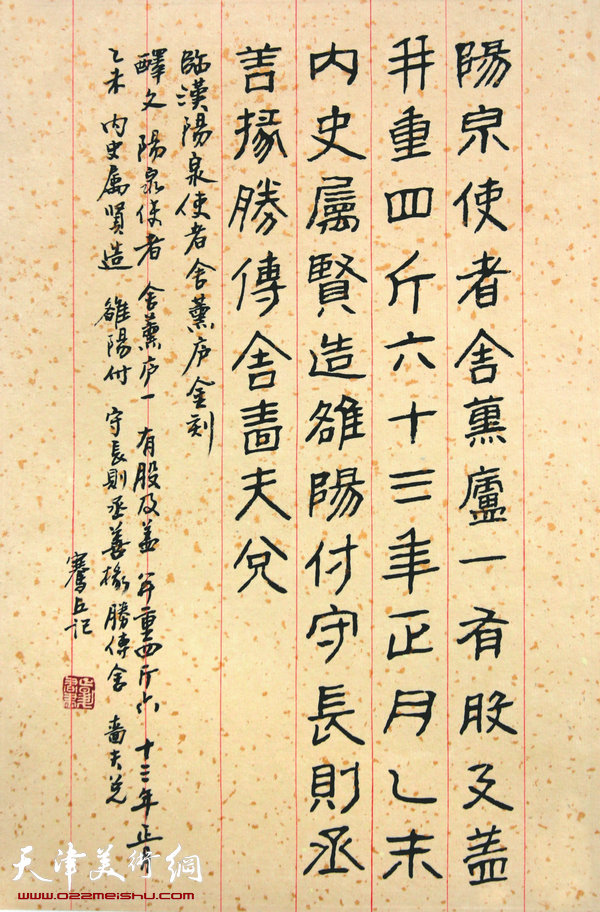 陽泉使者舍薰廬一有般及盖
并重四斤六十三年正月乙未
内史屬賢造雒陽付守長則丞
善掾勝傳舍嗇夫兌
临漢陽泉使者舍薰庐金刻
释文 陽泉使者 舍薰庐一 有股及盖 并重四斤六 十三年正月
乙未 内史属賢造 雒陽付 守長則丞善掾勝傳舍 嗇夫兑
骞丘记
天津美術網
www.022meishu.com